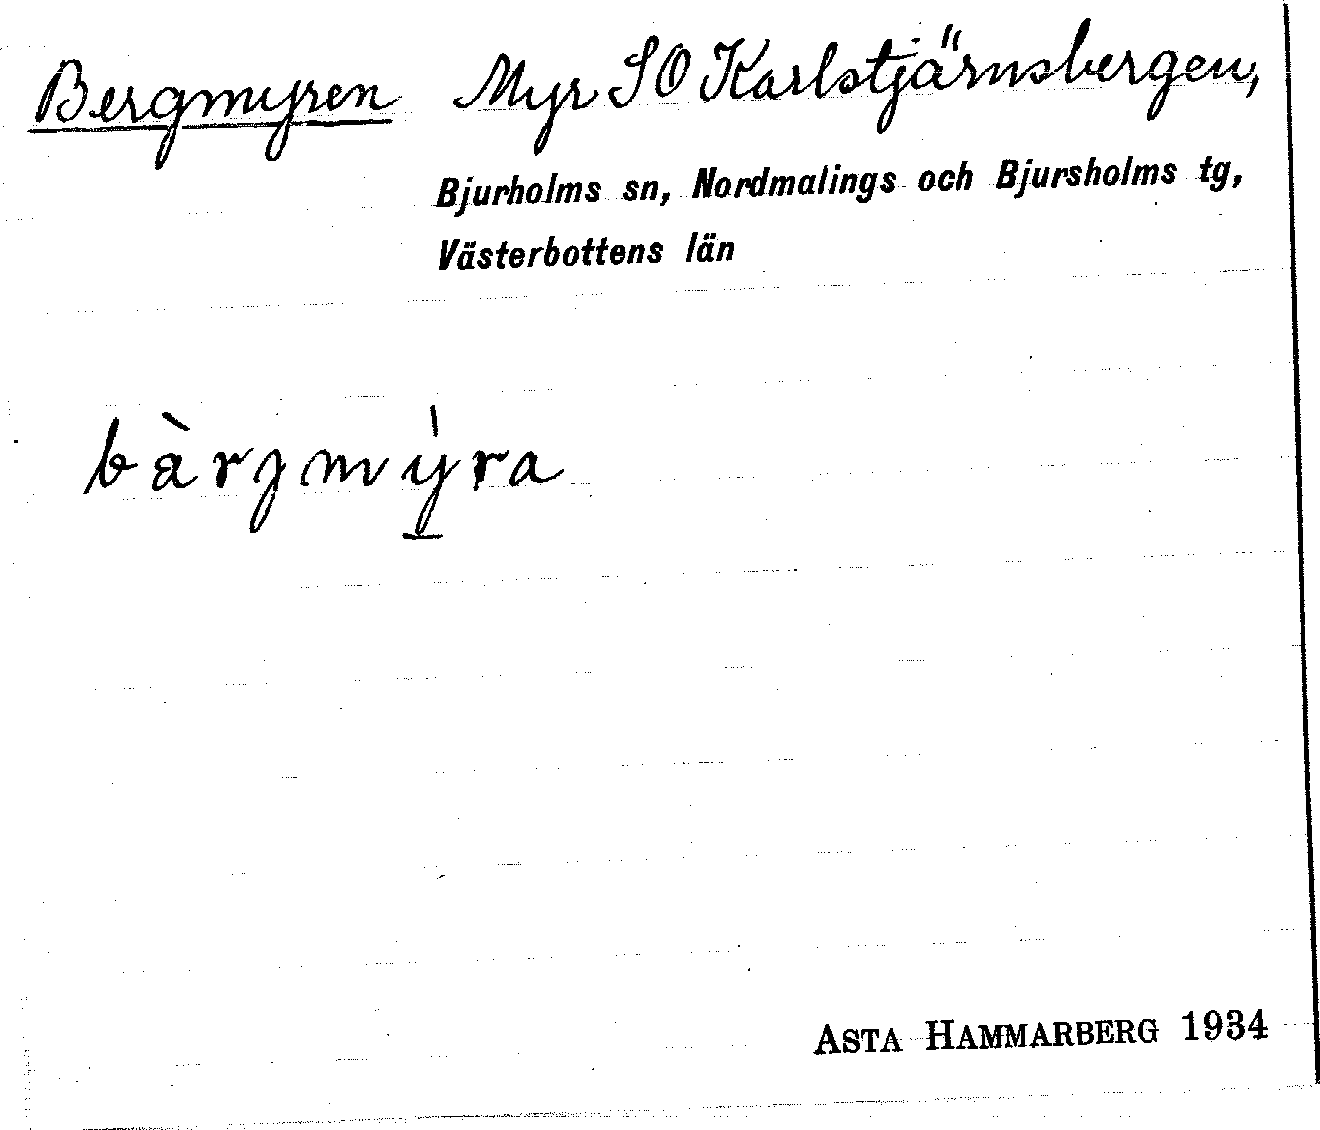 Bergmyren Myr SO Karlstjärnsbergen,
Bjurholms sn, Nordmalings och Bjursholms tg,
Västerbottens län
bàrgmy̱̍ra
ASTA HAMMARBERG 1934